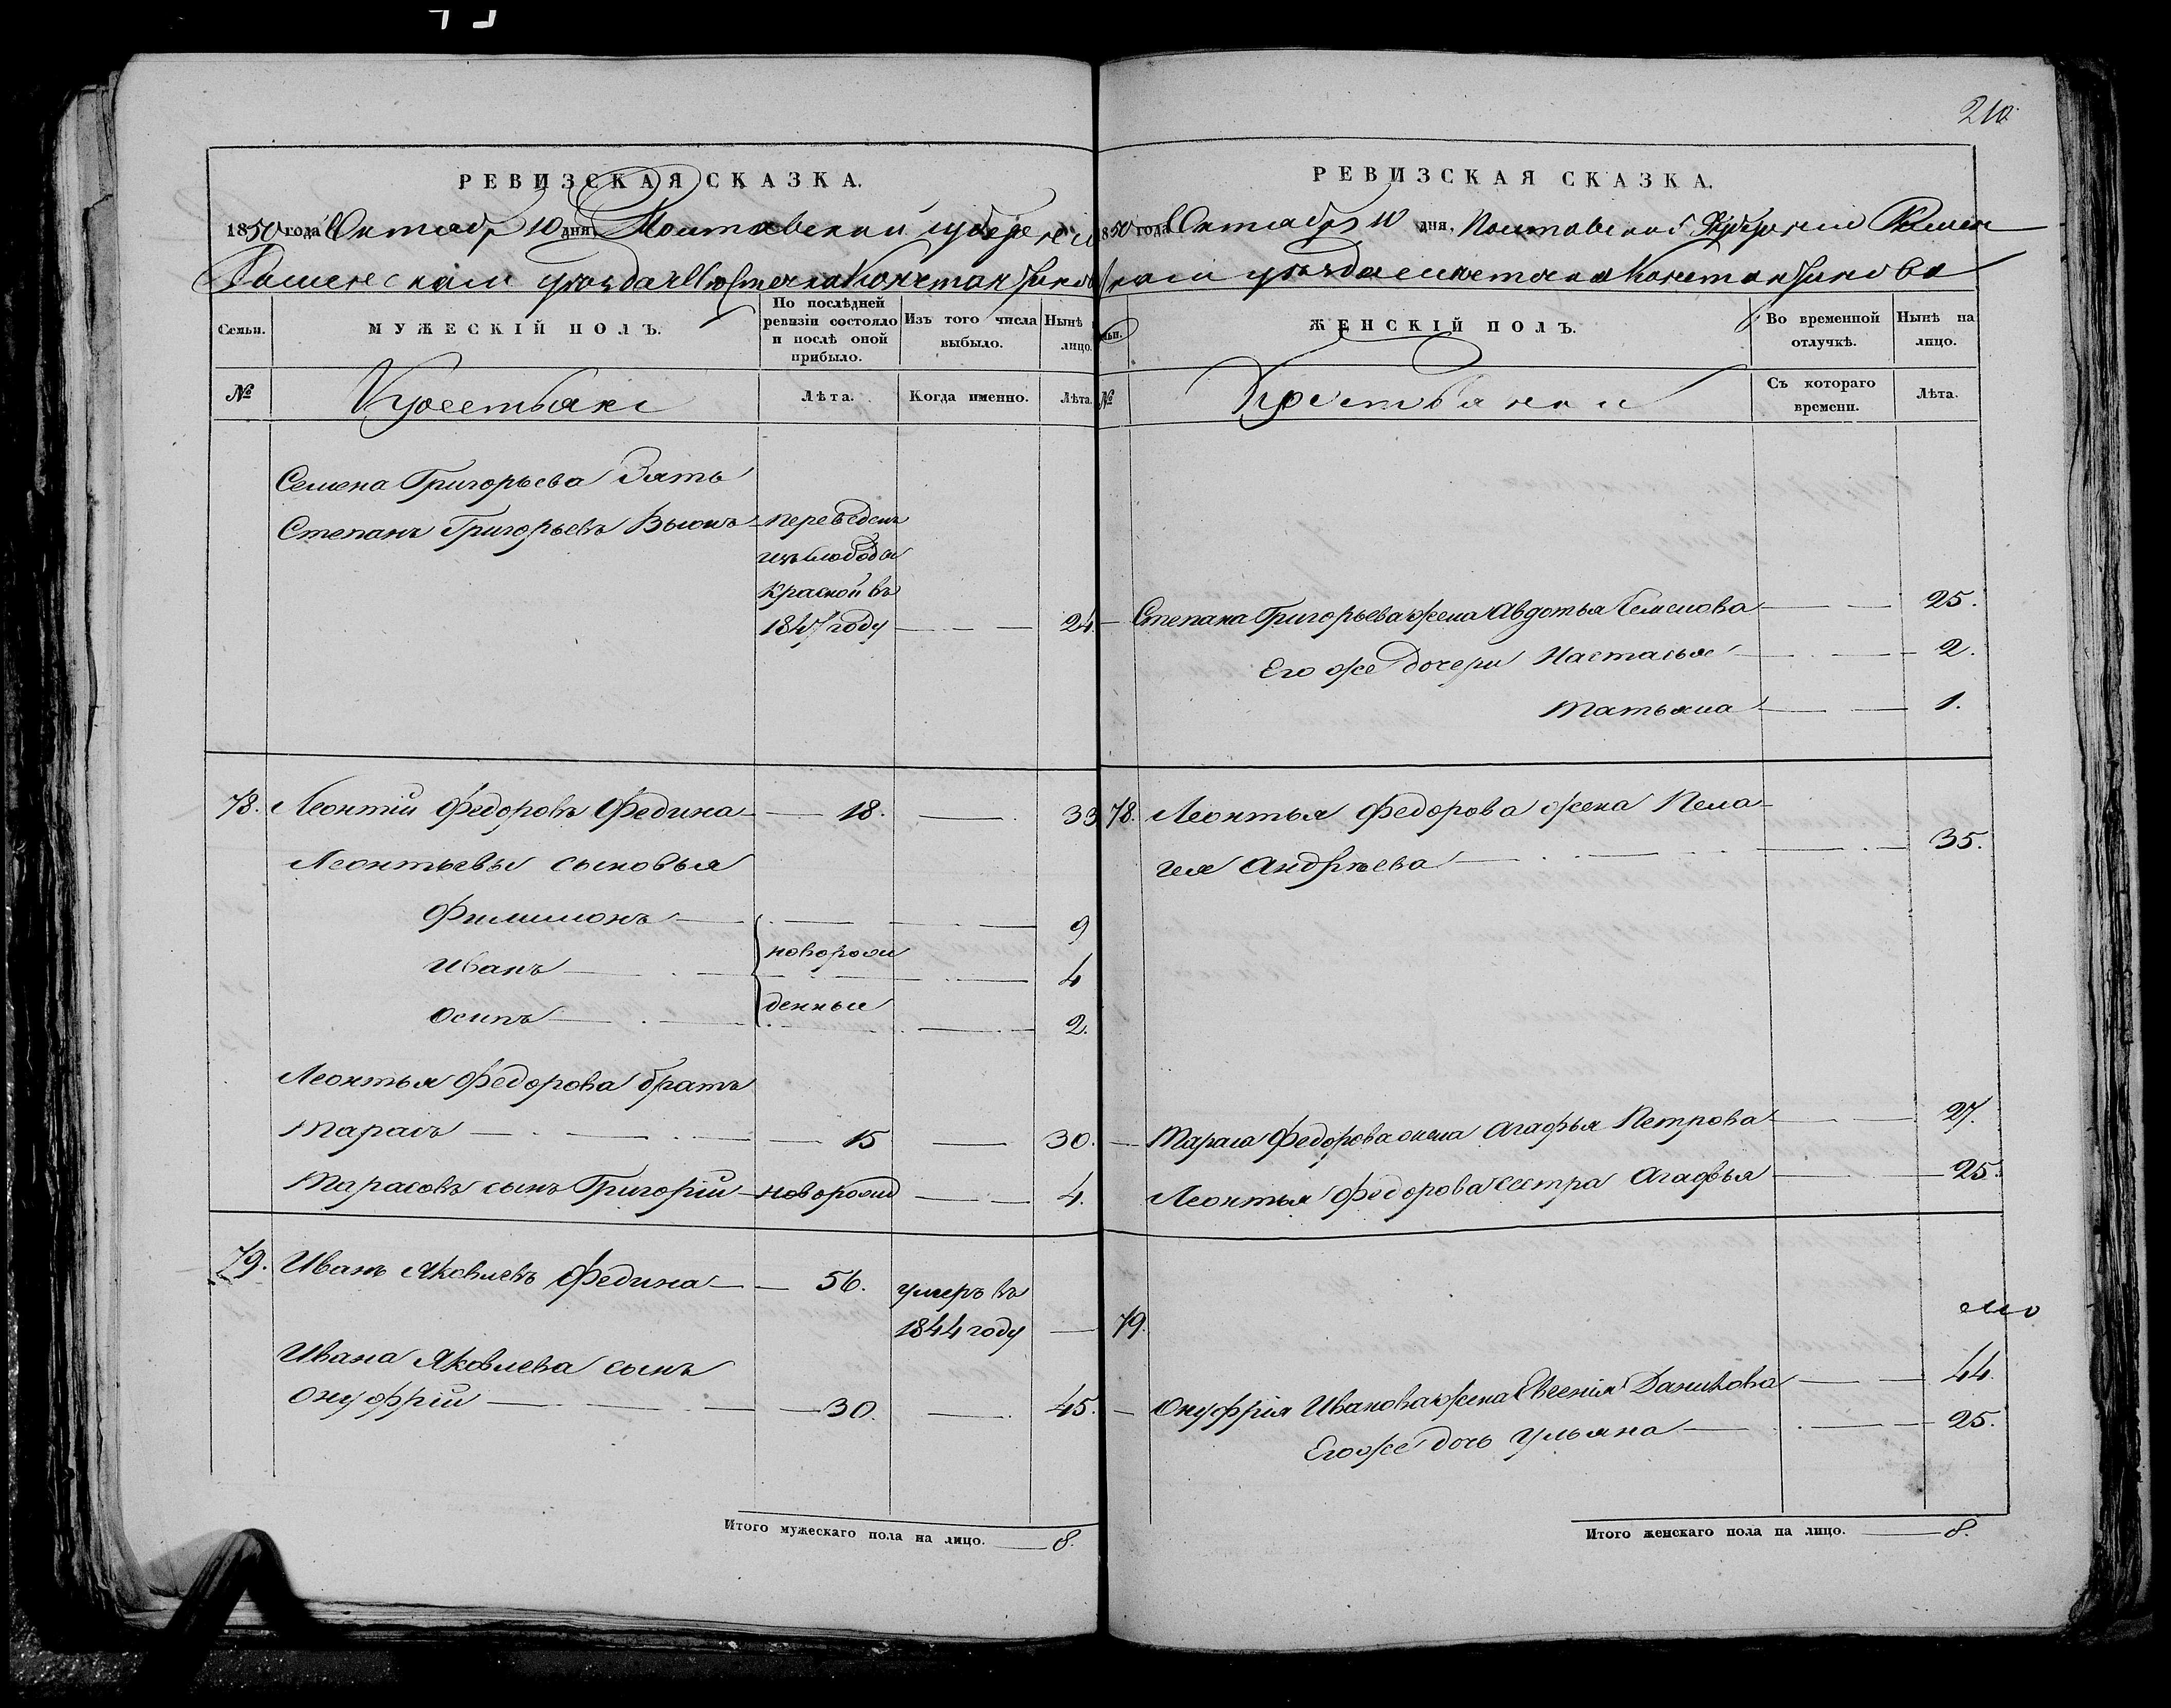 210
РЕВИЗСКАЯ СКАЗКА.
1850 года Октября 10 дня, Полтавской губерніи
Роменскаго уезда местечка Константинова
Семьи.
МУЖЕСКІЙ ПОЛЪ.
По послѣдней ревизіи состояло и послѣ оной прибыло.
Изъ того числа выбыло.
Нынѣ лицо.
№
Крестьяне
Лѣта.
Когда именно.
Лѣта.
Семена Григорьева Зять
Степанъ Григорьевъ Вьюнъ переведенъ
изъ слободы
Красной въ
1847 году 24.
78. Леонтій Федоровъ Федина 18. 33
Леонтьевы сыновья
Филимонъ 9
новорож
Иванъ 4
денные
Осипъ 2.
Леонтья Федорова братъ
Тарасъ 15 30.
Тарасовъ сынъ Григорій новорожд 4.
79. Иванъ Яковлевъ Федина 56. умеръ въ
1844 году
Ивана Яковлева сынъ
Онуфрій 30. 45.
Итого мужескаго пола на лицо. 8.
РЕВИЗСКАЯ СКАЗКА.
850 года Октября 10 дня, Полтавской Губерніи Ромен
скаго уезда местечка Константинова
ьи.
ЖЕНСКІЙ ПОЛЪ.
Во временной отлучкѣ.
Нынѣ на лицо.
№
Крестьянки
Съ котораго времени.
Лѣта.
Степана Григорьева жена Авдотья Семенова 25.
Его же дочери Настасья 2.
Татьяна 1.
78. Леонтья Федорова жена Пела
гея Андрѣева 35.
Тараса Федорова жена Агафья Петрова 27.
Леонтья Федорова сестра Агафья 25.
79.
Онуфрія Иванова жена Евгенія Данилова 44.
Его же дочь Ульяна 25.
Итого женскаго пола на лицо. 8.